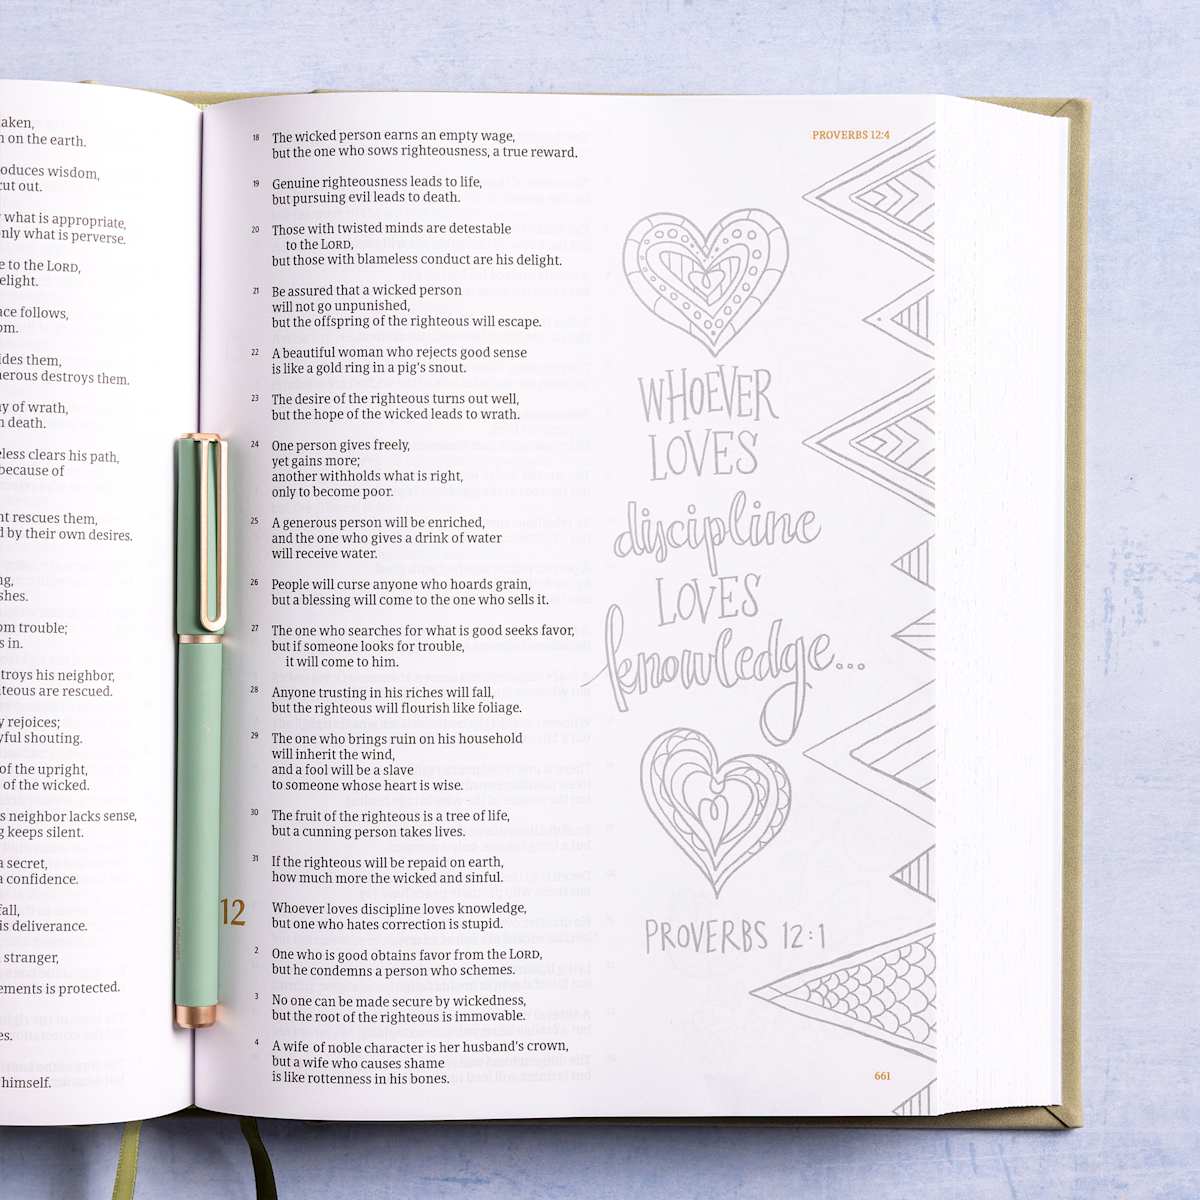 aken,
on the earth.
oduces wisdom,
cut out.
what is appropriate,
only what is perverse.
e to the LORD,
elight.
ace follows,
om.
ides them,
nerous destroys them.
ay of wrath,
death.
eless clears his path,
because of
nt rescues them,
d by their own desires.
ng,
shes.
om trouble;
s in.
troys his neighbor,
teous are rescued.
y rejoices;
yful shouting.
of the upright,
of the wicked.
s neighbor lacks sense,
g keeps silent.
a secret,
a confidence.
fall,
is deliverance.
stranger,
ements is protected.
es.
himself.
18 The wicked person earns an empty wage,
but the one who sows righteousness, a true reward.
19 Genuine righteousness leads to life,
but pursuing evil leads to death.
20 Those with twisted minds are detestable
to the LORD,
but those with blameless conduct are his delight.
21 Be assured that a wicked person
will not go unpunished,
but the offspring of the righteous will escape.
22 A beautiful woman who rejects good sense
is like a gold ring in a pig's snout.
23 The desire of the righteous turns out well,
but the hope of the wicked leads to wrath.
24 One person gives freely,
yet gains more;
another withholds what is right,
only to become poor.
25 A generous person will be enriched,
and the one who gives a drink of water
will receive water.
26 People will curse anyone who hoards grain,
but a blessing will come to the one who sells it.
27 The one who searches for what is good seeks favor,
but if someone looks for trouble,
it will come to him.
28 Anyone trusting in his riches will fall,
but the righteous will flourish like foliage.
29 The one who brings ruin on his household
will inherit the wind,
and a fool will be a slave
to someone whose heart is wise.
30 The fruit of the righteous is a tree of life,
but a cunning person takes lives.
31 If the righteous will be repaid on earth,
how much more the wicked and sinful.
12 Whoever loves discipline loves knowledge,
but one who hates correction is stupid.
2 One who is good obtains favor from the LORD,
but he condemns a person who schemes.
3 No one can be made secure by wickedness,
but the root of the righteous is immovable.
4 A wife of noble character is her husband's crown,
but a wife who causes shame
is like rottenness in his bones.
PROVERBS 12:4
WHOEVER
LOVES
discipline
LOVES
knowledge...
PROVERBS 12:1
661